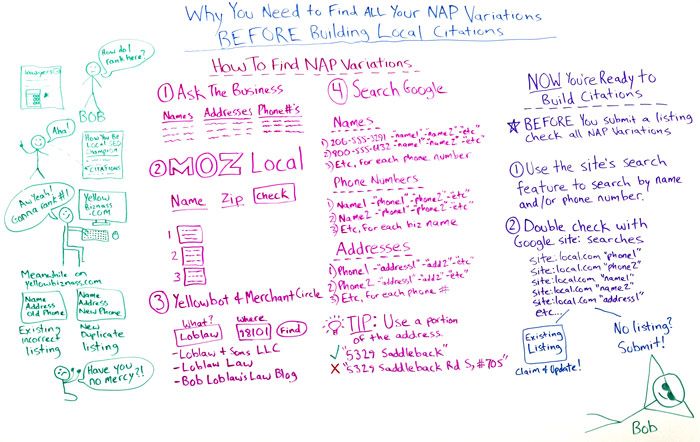 Why You Need to Find ALL Your NAP Variations
BEFORE Building Local Citations
How do I
rank here?
lawyers
BOB
Aha!
How You Be
Local SEO
Champion
CITATIONS
Aw Yeah!
Gonna rank #1!
Yellow
Biznass
.com
Meanwhile on
yellowbiznass.com
Name
Address
Old Phone
Name
Address
New Phone
Existing
incorrect
listing
New
Duplicate
listing
Have you
no mercy?!
How To Find NAP Variations
① Ask The Business
Names Addresses Phone#'s
② MOZ Local
Name Zip check
1
2
3
③ Yellowbot & MerchantCircle
What? Where
Loblaw 98101 Find
- Loblaw & Sons LLC
- Loblaw Law
- Bob Loblaw's Law Blog
④ Search Google
Names
1) 206-555-3291 -"name1" -"name2" -"etc"
2) 800-555-6132 -"name1" -"name2" -"etc"
3) Etc, for each phone number
Phone Numbers
1) Name1 -"phone1" -"phone2" -"etc"
2) Name2 -"phone1" -"phone2" -"etc"
3) Etc, for each biz name
Addresses
1) Phone1 -"address1" -"add2" -"etc"
2) Phone2 -"address1" -"add2" -"etc"
3) Etc, for each phone #
TIP: Use a portion
of the address.
✓ "5329 Saddleback"
X "5329 Saddleback Rd S, #705"
NOW You're Ready to
Build Citations
★ BEFORE You submit a listing
check all NAP Variations
① Use the site's search
feature to search by name
and/or phone number.
② Double check with
Google site: searches
site:local.com "phone1"
site:local.com "phone2"
site:local.com "name1"
site:local.com "name2"
site:local.com "address1"
etc...
Existing
Listing
Claim & Update!
No listing?
Submit!
Bob